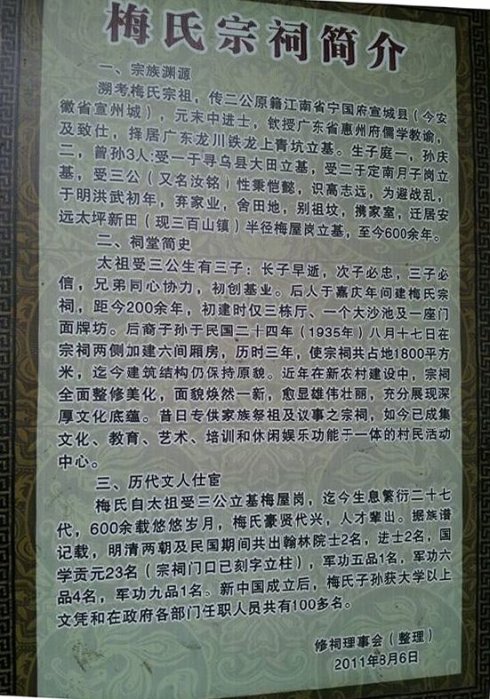 梅氏宗祠简介
一、宗族渊源
溯考梅氏宗祖，传二公原籍江南省宁国府宣城县（今安
徽省宣州城），元末中进士，钦授广东省惠州府儒学教谕，
及致仕，择居广东龙川铁龙上青坑立基。生子庭一，孙庆
二，曾孙3人：受一于寻乌县大田立基，受二于定南月子岗立
基，受三公（又名汝铭）性秉恺懿，识高志远，为避战乱，
于明洪武初年，弃家业，舍田地，别祖坟，携家室，迁居安
远太坪新田（现三百山镇）半径梅屋岗立基，至今600余年。
二、祠堂简史
太祖受三公生有三子：长子早逝，次子必忠，三子必
信，兄弟同心协力，初创基业。后人于嘉庆年间建梅氏宗
祠，距今200余年，初建时仅三栋厅、一个大沙池及一座门
面牌坊。后裔子孙于民国二十四年（1935年）八月十七日在
宗祠两侧加建六间厢房，历时三年，使宗祠共占地1800平方
米，迄今建筑结构仍保持原貌。近年在新农村建设中，宗祠
全面整修美化，面貌焕然一新，愈显雄伟壮丽，充分展现深
厚文化底蕴。昔日专供家族祭祖及议事之宗祠，如今已成集
文化、教育、艺术、培训和休闲娱乐功能于一体的村民活动
中心。
三、历代文人仕宦
梅氏自太祖受三公立基梅屋岗，迄今生息繁衍二十七
代，600余载悠悠岁月，梅氏豪贤代兴，人才辈出。据族谱
记载，明清两朝及民国期间共出翰林院士2名，进士2名，国
学贡元23名（宗祠门口已刻字立柱），军功五品1名，军功六
品4名，军功九品1名。新中国成立后，梅氏子孙获大学以上
文凭和在政府各部门任职人员共有100多名。
修祠理事会（整理）
2011年8月6日